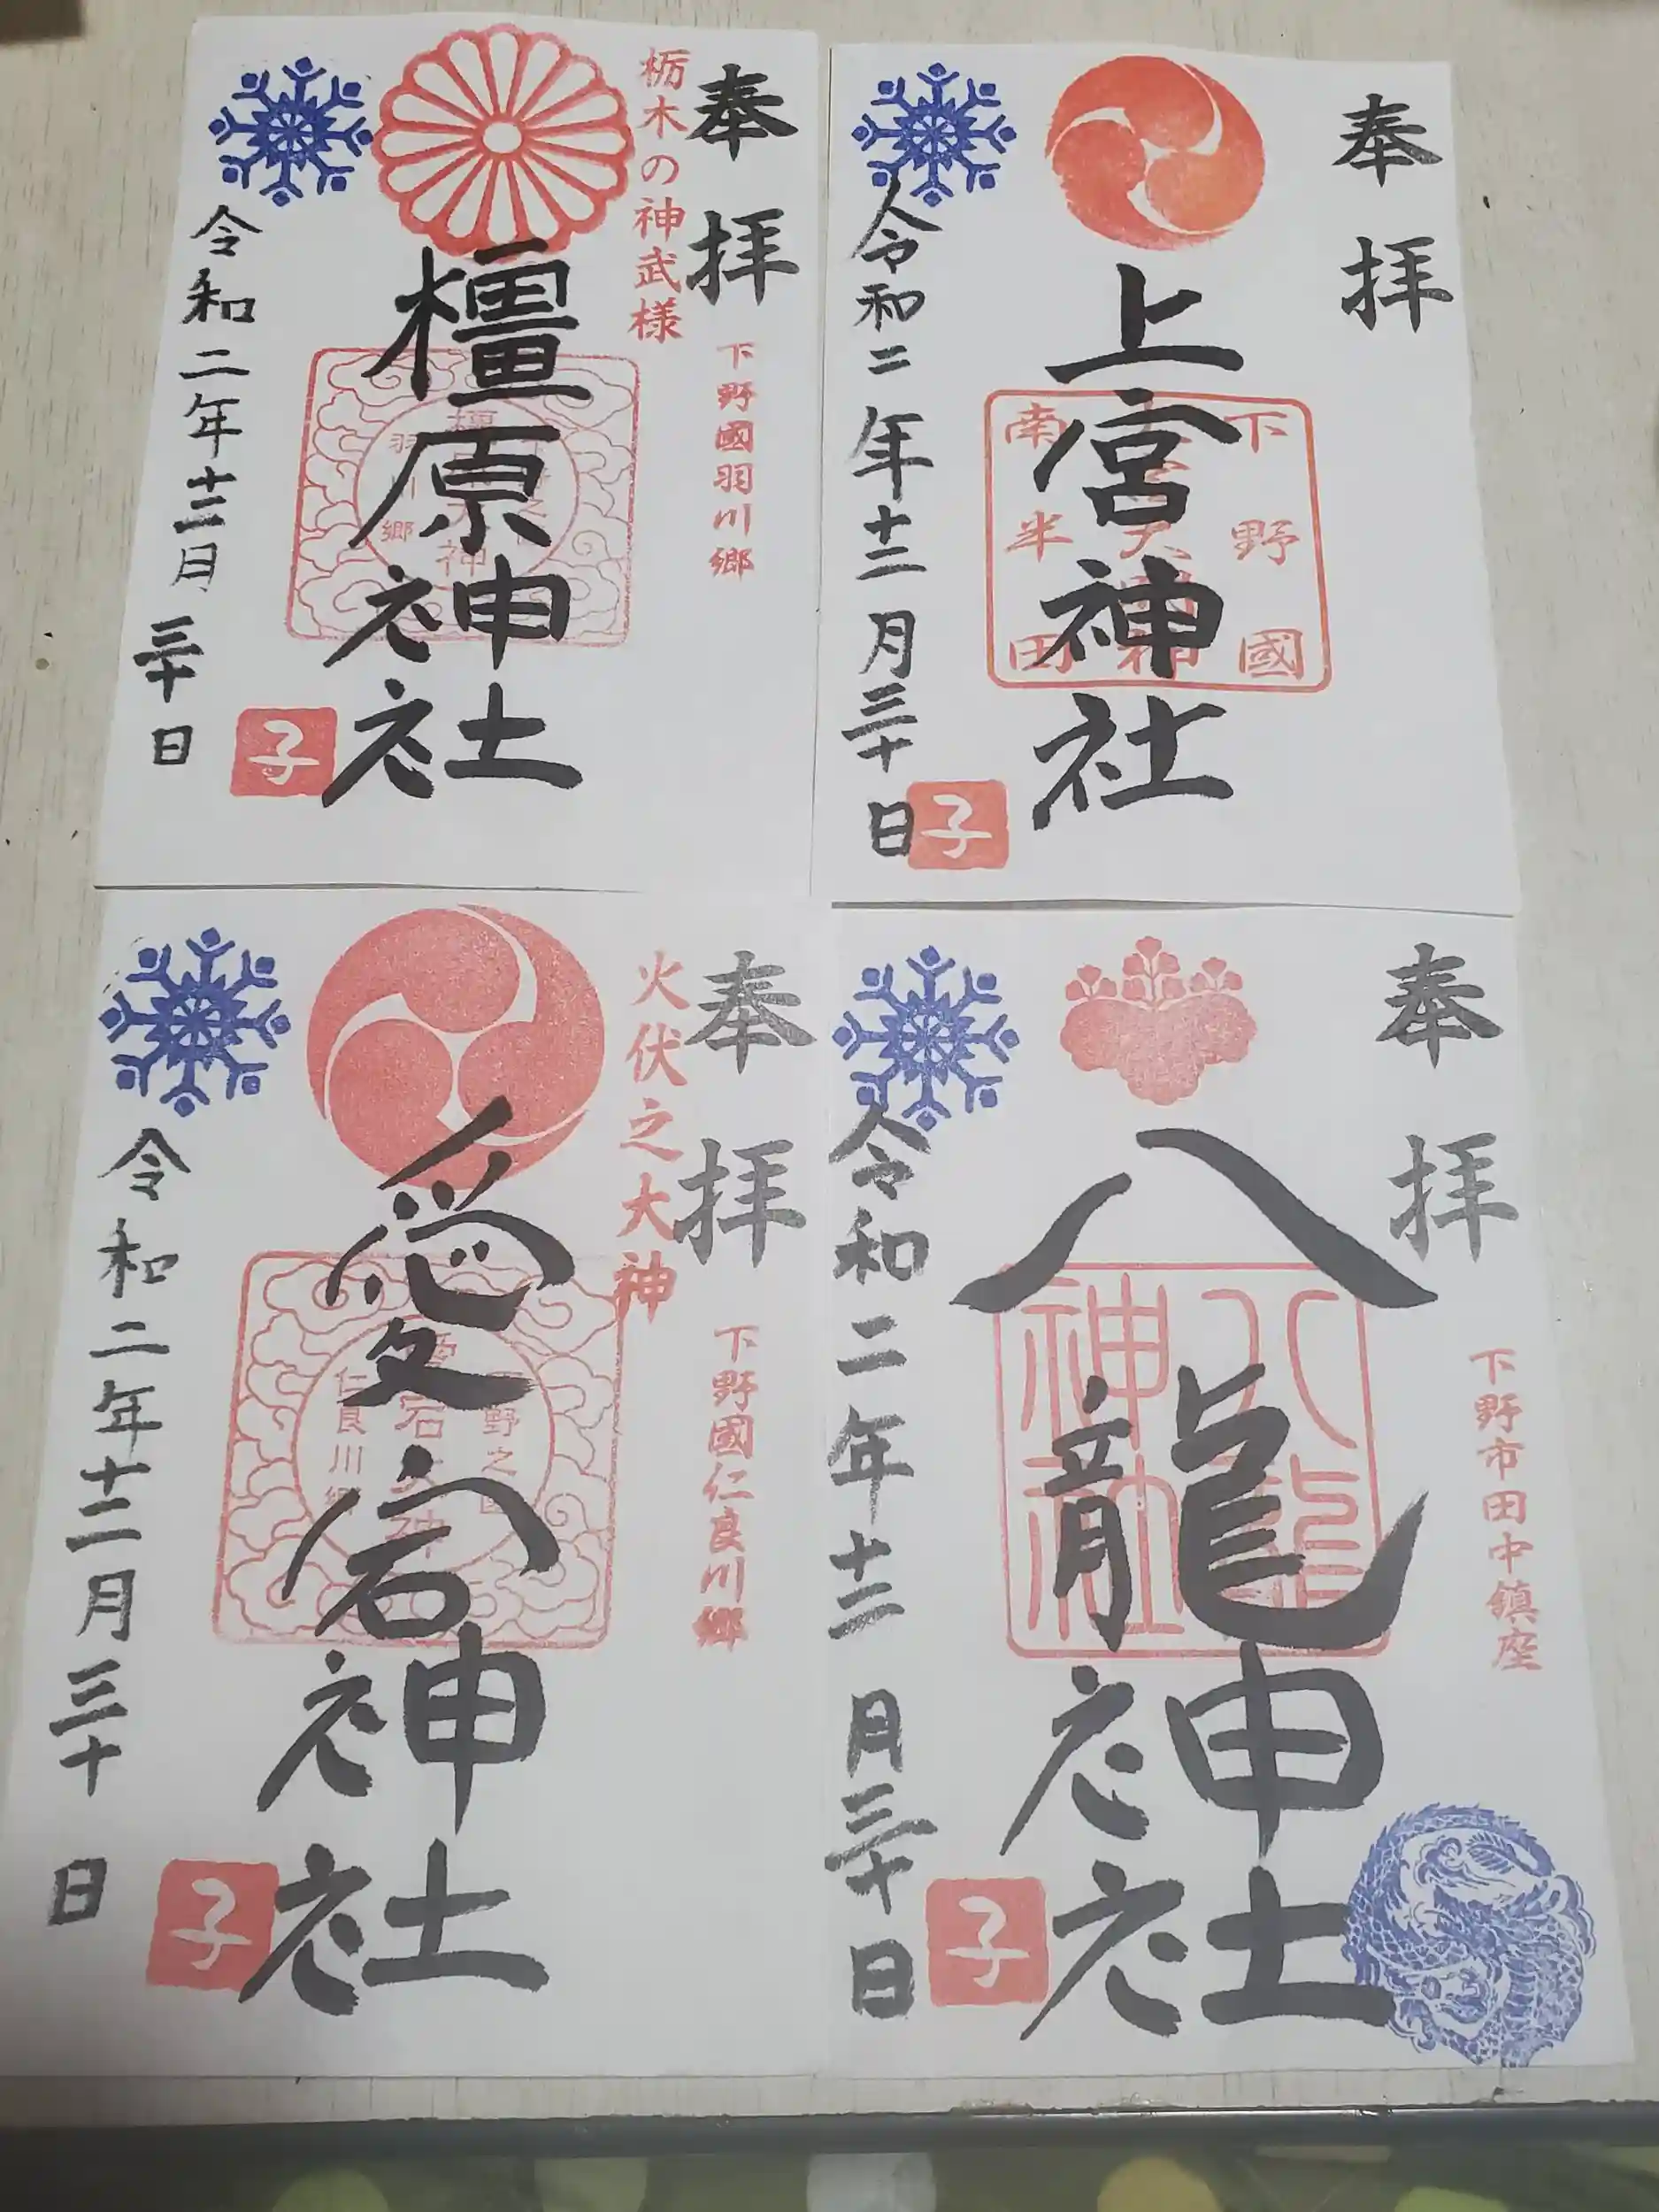 奉拝
栃木の神武様
下野國羽川郷
橿原神社
令和二年十二月三十日
子
奉拝
上宮神社
下野國
南半田
令和二年十二月三十日
子
奉拝
火伏之大神
下野國仁良川郷
愛宕神社
仁良川郷
令和二年十二月三十日
子
奉拝
下野市田中鎮座
八龍神社
八龍
神社
令和二年十二月三十日
子